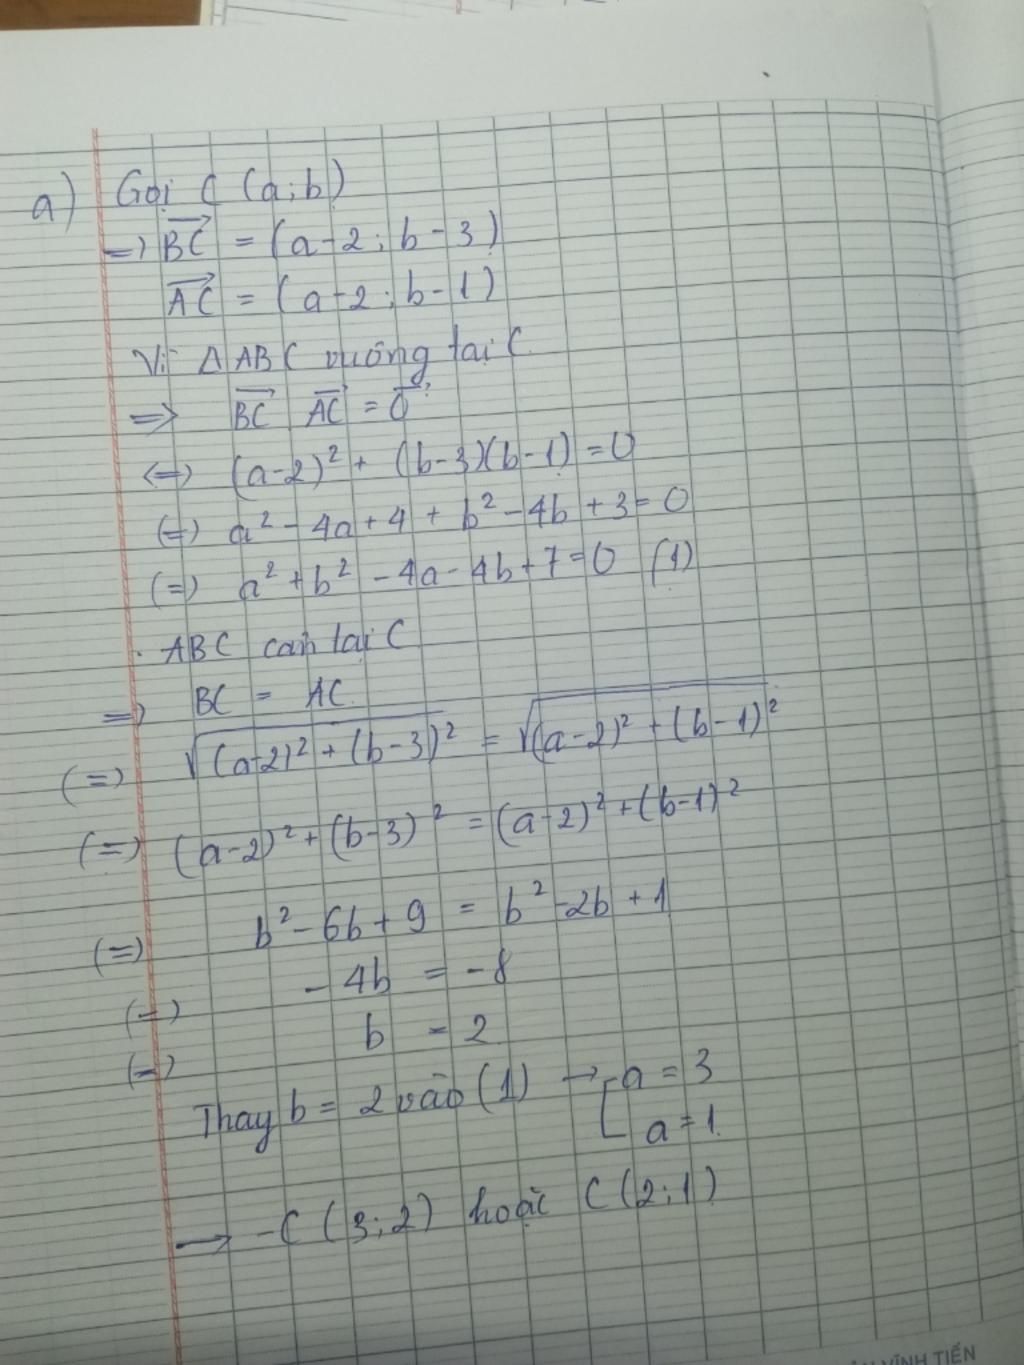 a) Gọi C (a; b)
=> BC = (a-2; b-3)
AC = (a-2; b-1)
Vì Δ ABC vuông tại C
=> BC AC = 0
<=> (a-2)² + (b-3)(b-1) = 0
(=) a² - 4a + 4 + b² - 4b + 3 = 0
(=) a² + b² - 4a - 4b + 7 = 0 (1)
. ABC cân tại C
=> BC = AC.
(=) √(a-2)² + (b-3)² = √(a-2)² + (b-1)²
(=) (a-2)² + (b-3)² = (a-2)² + (b-1)²
(=) b² - 6b + 9 = b² - 2b + 1
(=) - 4b = -8
(=) b = 2
Thay b = 2 vào (1) → [ a = 3
a = 1
→ - C (3; 2) hoặc C (2; 1)
VĨNH TIẾN